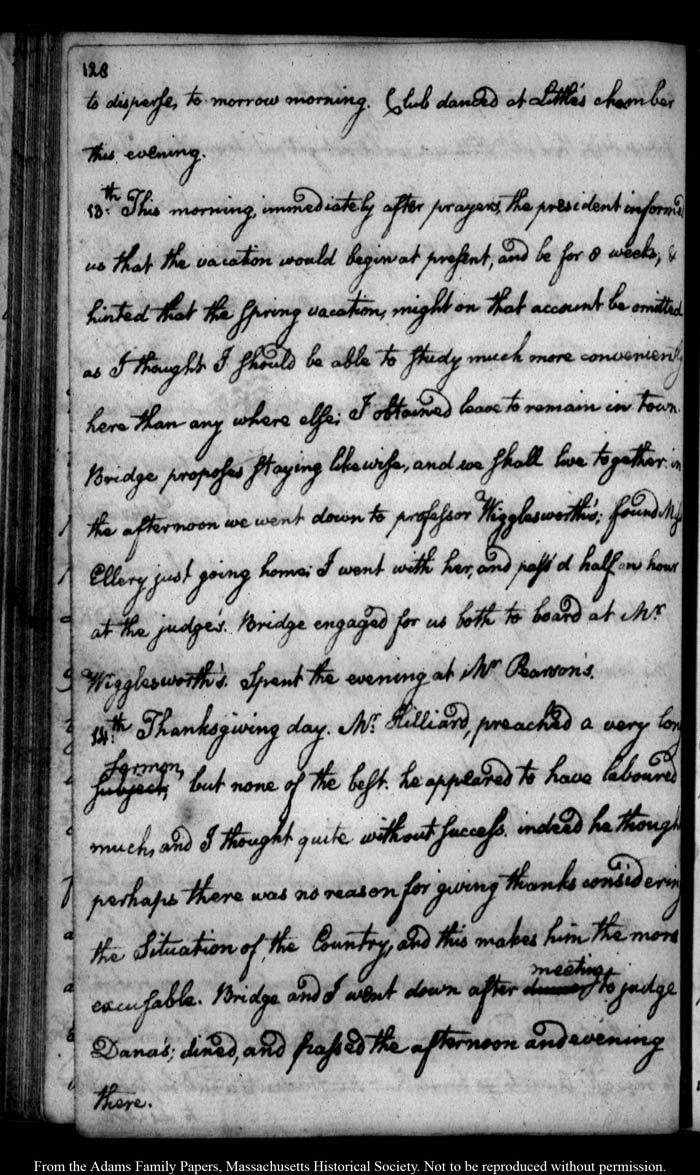 128
to disperse, to morrow morning. Club danced at Little's chamber
this evening.
13:th This morning, immediately after prayers, the president inform'd
us that the vacation would begin at present, and be for 8 weeks, &
hinted that the spring vacation, might on that account be omitted
as I thought I should be able to study much more conveniently
here than any where else; I obtained leave to remain in town.
Bridge proposes staying likewise, and we shall live together. in
the afternoon we went down to professor Wigglesworth's; found Miss
Ellery just going home; I went with her, and pass'd half an hour
at the judge's. Bridge engaged for us both to board at Mr
Wigglesworth's. Spent the evening at Mr Pearson's.
14:th Thanksgiving day. Mr. Hilliard, preached a very long
sermon,
subject, but none of the best. he appeared to have laboured
much, and I thought quite without success. indeed he thought
perhaps there was no reason for giving thanks considering
the Situation of the Country, and this makes him the more
meeting
excusable. Bridge and I went down after dinner to judge
Dana's; dined, and passed the afternoon and evening
there.
From the Adams Family Papers, Massachusetts Historical Society. Not to be reproduced without permission.